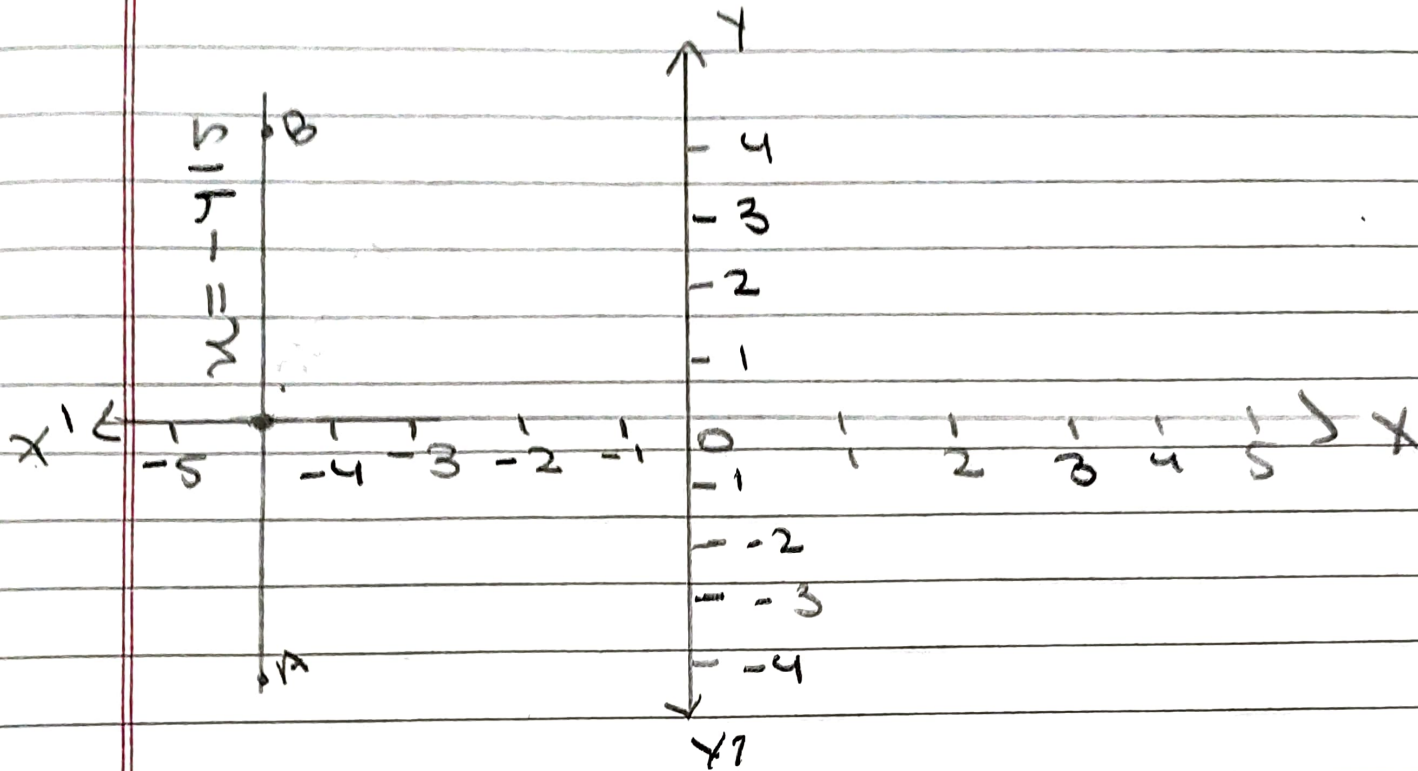 Y
B
4
3
2
1
X' -5 -4 -3 -2 -1 0 1 2 3 4 5 X
1
-2
-3
-4
A
Y'